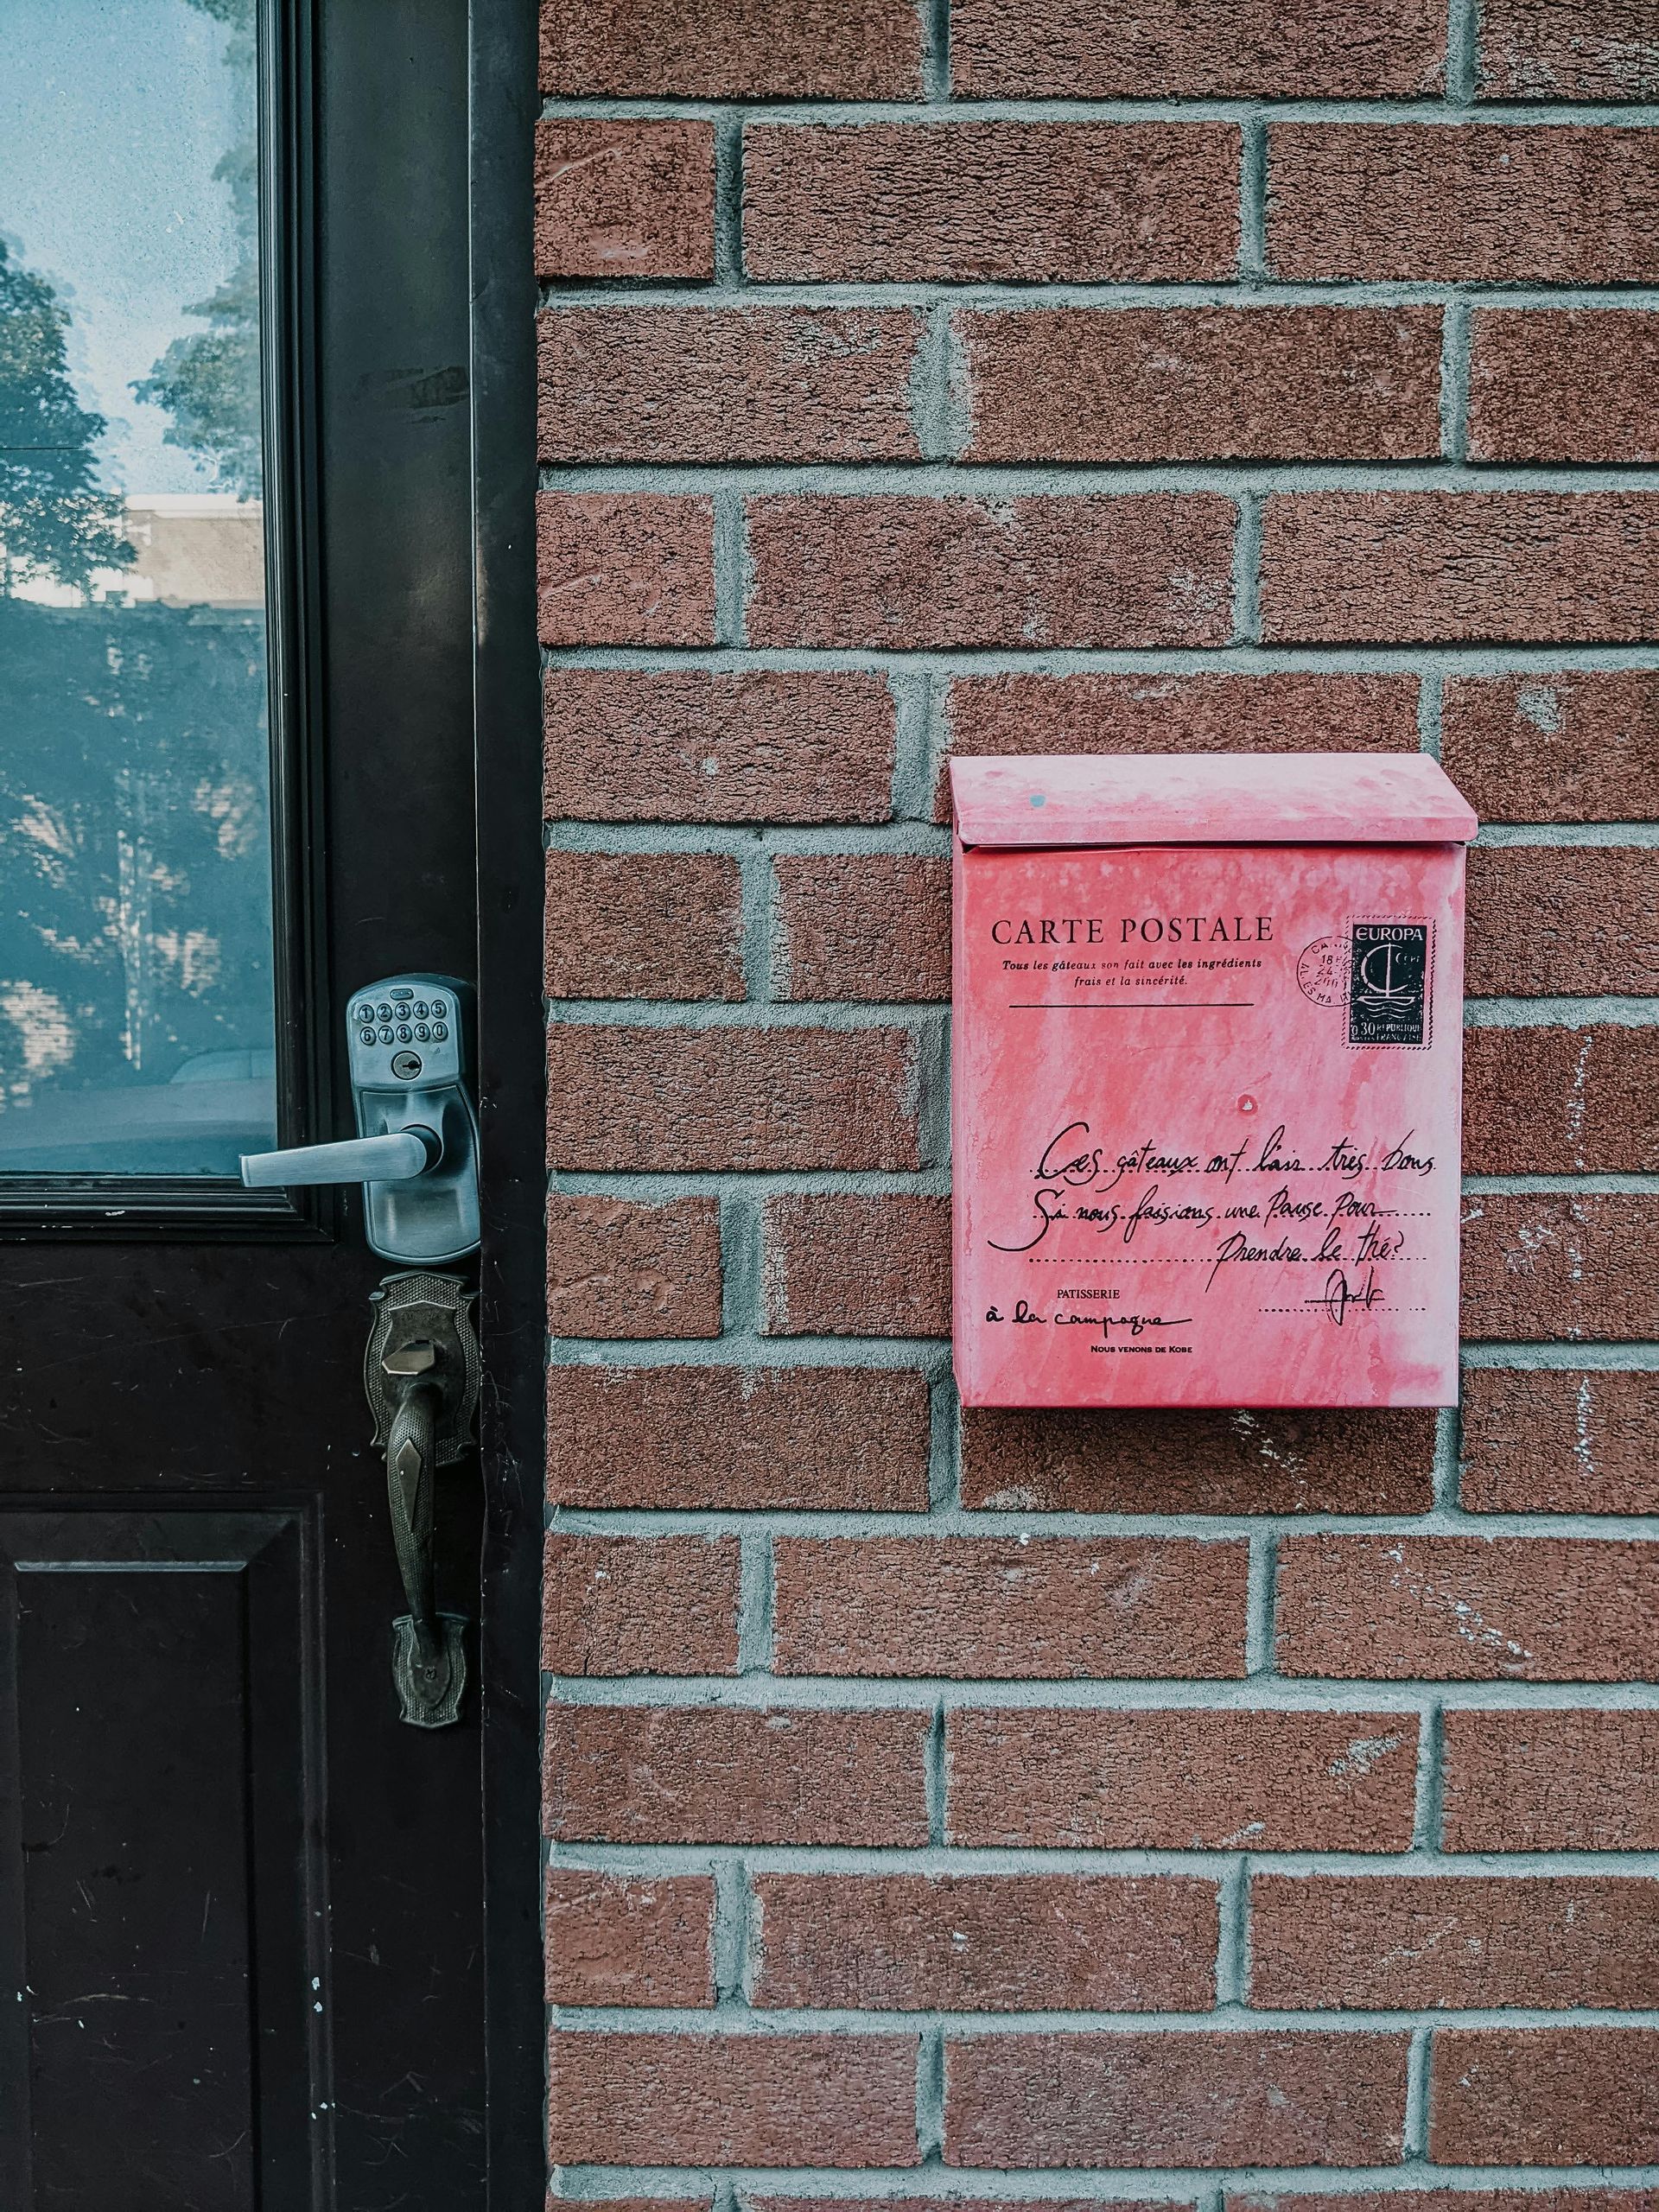 CARTE POSTALE
Tous les gâteaux son fait avec les ingrédients
frais et la sincérité.
EUROPA
CEPT
0,30 REPUBLIQUE
POSTES FRANÇAISE
18 H
24-
Ces gâteaux ont l'air très bons
Si nous faisions une Pause Pour
Prendre le thé?
PATISSERIE
à la campagne
NOUS VENONS DE KOBE
1 2 3 4 5
6 7 8 9 0